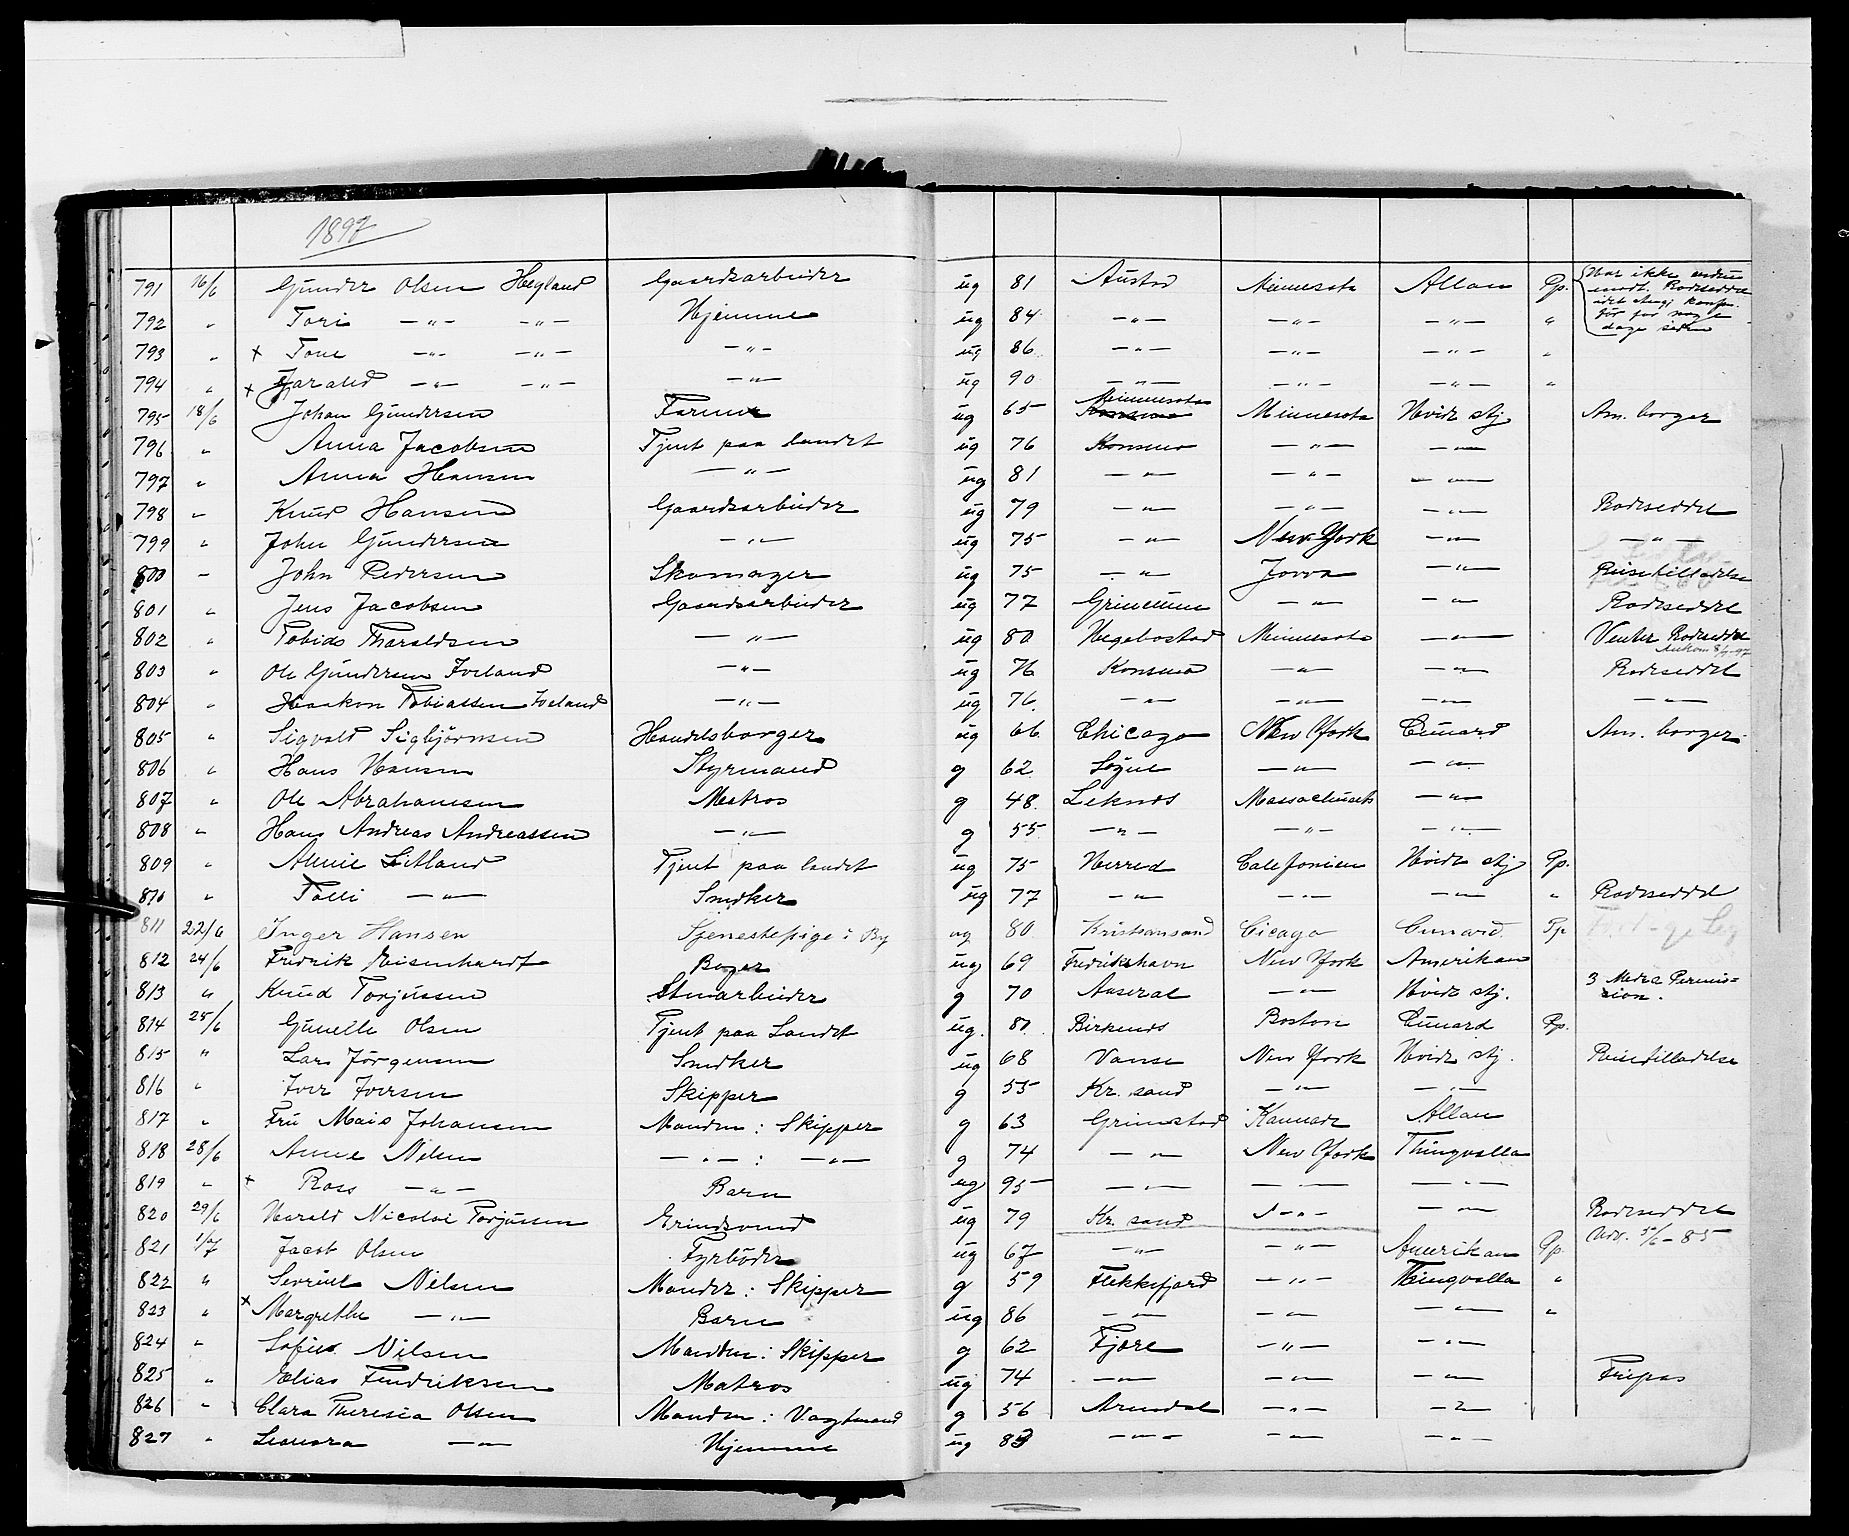 1897
791 16/6 Gunder Olsen Hegland Gaardsarbeider ug 81 Austad Minnesota Allan Pp. Har ikke endnu
modt. Rodeseddel
dage siden
792 " Tori —"— —"— Hjemme ug 84 —"— —"— —"— "
793 " × Tone —"— —"— —"— ug 86 —"— —"— —"— "
794 " × Harald —"— —"— —"— ug 90 —"— —"— —"— "
795 18/6 Johan Gundersen Farmer ug 65 Minnesota Minnesota Hvide stj Am. borger
796 " Anna Jacobsen Tjent paa landet ug 76 Konsmo —"— —"—
797 " Anna Hansen —"— ug 81 —"— —"— —"—
798 " Knud Hansen Gaardsarbeider ug 79 —"— —"— —"— Rodeseddel
799 " John Gundersen —"— ug 75 —"— New York —"— —"—
800 " John Pedersen Skomager ug 75 —"— Jovva —"— Reisetilladelse
801 " Jens Jacobsen Gaardsarbeider ug 77 Grindum —"— —"— Rodeseddel
802 " Tobias Tharaldsen —"— ug 80 Hegebostad Minnesota —"— Venter Rodeseddel
Ankom 8/7-97
803 " Ole Gundersen Iveland —"— ug 76 Konsmo —"— —"— Rodeseddel
804 " Haakon Tobiassen Iveland —"— ug 76. —"— —"— —"— —"—
805 " Sigvald Sigbjörnsen Handelsborger ug 66 Chicago New York Cunard Am. borger
806 " Hans Hansen Styrmand g 62. Sögne —"— —"—
807 " Ole Abrahamsen Matros g 48. Leknes Massachusets —"—
808 " Hans Andreas Andreassen —"— g 55 —"— —"— —"—
809 " Amie Litland Tjent paa landet ug 75 Herred Calefonien Hvide stj Pp.
810 " Talli —"— Snedker ug 77 —"— —"— —"— " Rodeseddel
811 22/6 Inger Hansen Tjenestepige i By ug 80 Kristiansand Cicago Cunard. Pp
812 24/6 Fredrik Eisenhardt Bager ug 69 Fredrikshavn New York Amerikan
813 " Knud Torjussen Stenarbeider g 70 Aaseral —"— Hvide stj. 3 Mdrs Permis-
sion.
814 25/6 Gunelle Olsen Tjent paa Landet ug. 81 Birkenes Boston Cunard Pp.
815 " Lars Jörgensen Snedker ug 68 Vanse New York Hvide stj. Reisetilladelse
816 " Iver Iversen Skipper g 55 Kr. sand —"— —"—
817 " Fru Mais Johansen Manden: Skipper g 63 Grimstad Kannada Allan
818 28/6 Anne Nilsen —"—: —"— g 74 —"— New York Thingvalla
819 " × Ross —"— Barn ug 95 —"— —"— —"—
820 29/6 Harald Nicolai Torjussen Erindsvend ug 79 Kr. sand —"— —"— Rodeseddel
821 1/7 Jacob Olsen Fyrböder ug 67 —"— —"— Amerikan Pp. Udv. 5/6-85
822 " Sevrine Nilsen Manden: Skipper g 59 Flekkefjord —"— Thingvalla "
823 " × Margrethe —"— Barn ug 86 —"— —"— —"— "
824 " Sofie Nilsen Manden: Skipper g 62 Fjære —"— —"—
825 " Elias Fredriksen Matros ug 74 —"— —"— —"— Fripas
826 " Clara Theresia Olsen Manden: Vagtmand g 56 Arendal —"— —"—
827 " Leonora —"— Hjemme ug 83 —"— —"— —"—